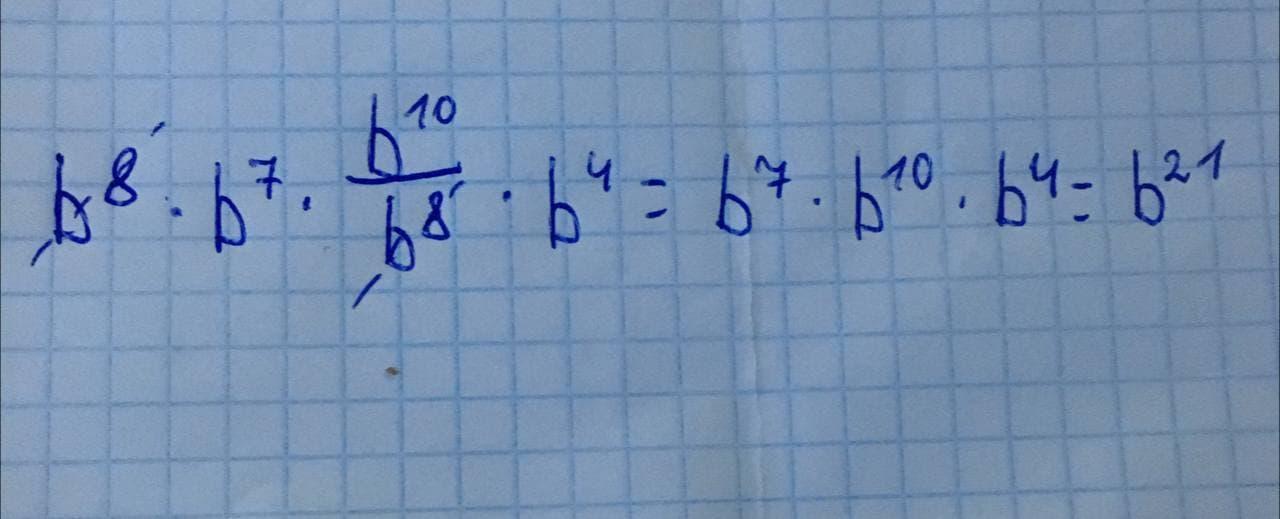 b⁸ · b⁷ · b¹⁰/b⁸ · b⁴ = b⁷ · b¹⁰ · b⁴ = b²¹